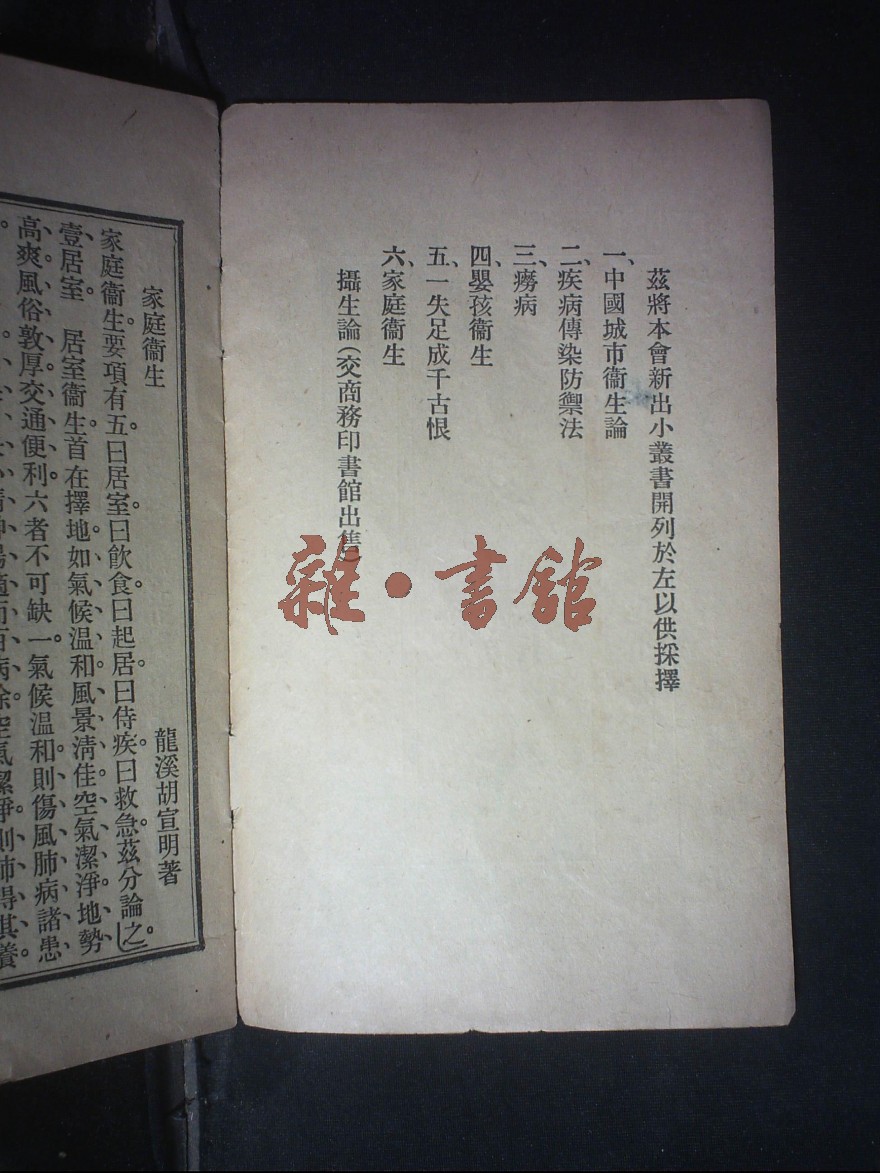 茲將本會新出小叢書開列於左以供採擇
一、中國城市衞生論
二、疾病傳染防禦法
三、癆病
四、嬰孩衞生
五、一失足成千古恨
六、家庭衞生
攝生論(交商務印書館出售)
雜·書館
家庭衞生
龍溪胡宣明著
家庭衞生要項有五。曰居室。曰飲食。曰起居。曰侍疾。曰救急。茲分論之。
壹、居室 居室衞生。首在擇地。如氣候温和、風景清佳、空氣潔淨、地勢
高爽、風俗敦厚、交通便利。六者不可缺一。氣候温和。則傷風肺病諸患、
精神暢適而百病除。空氣潔淨。則肺得其養。